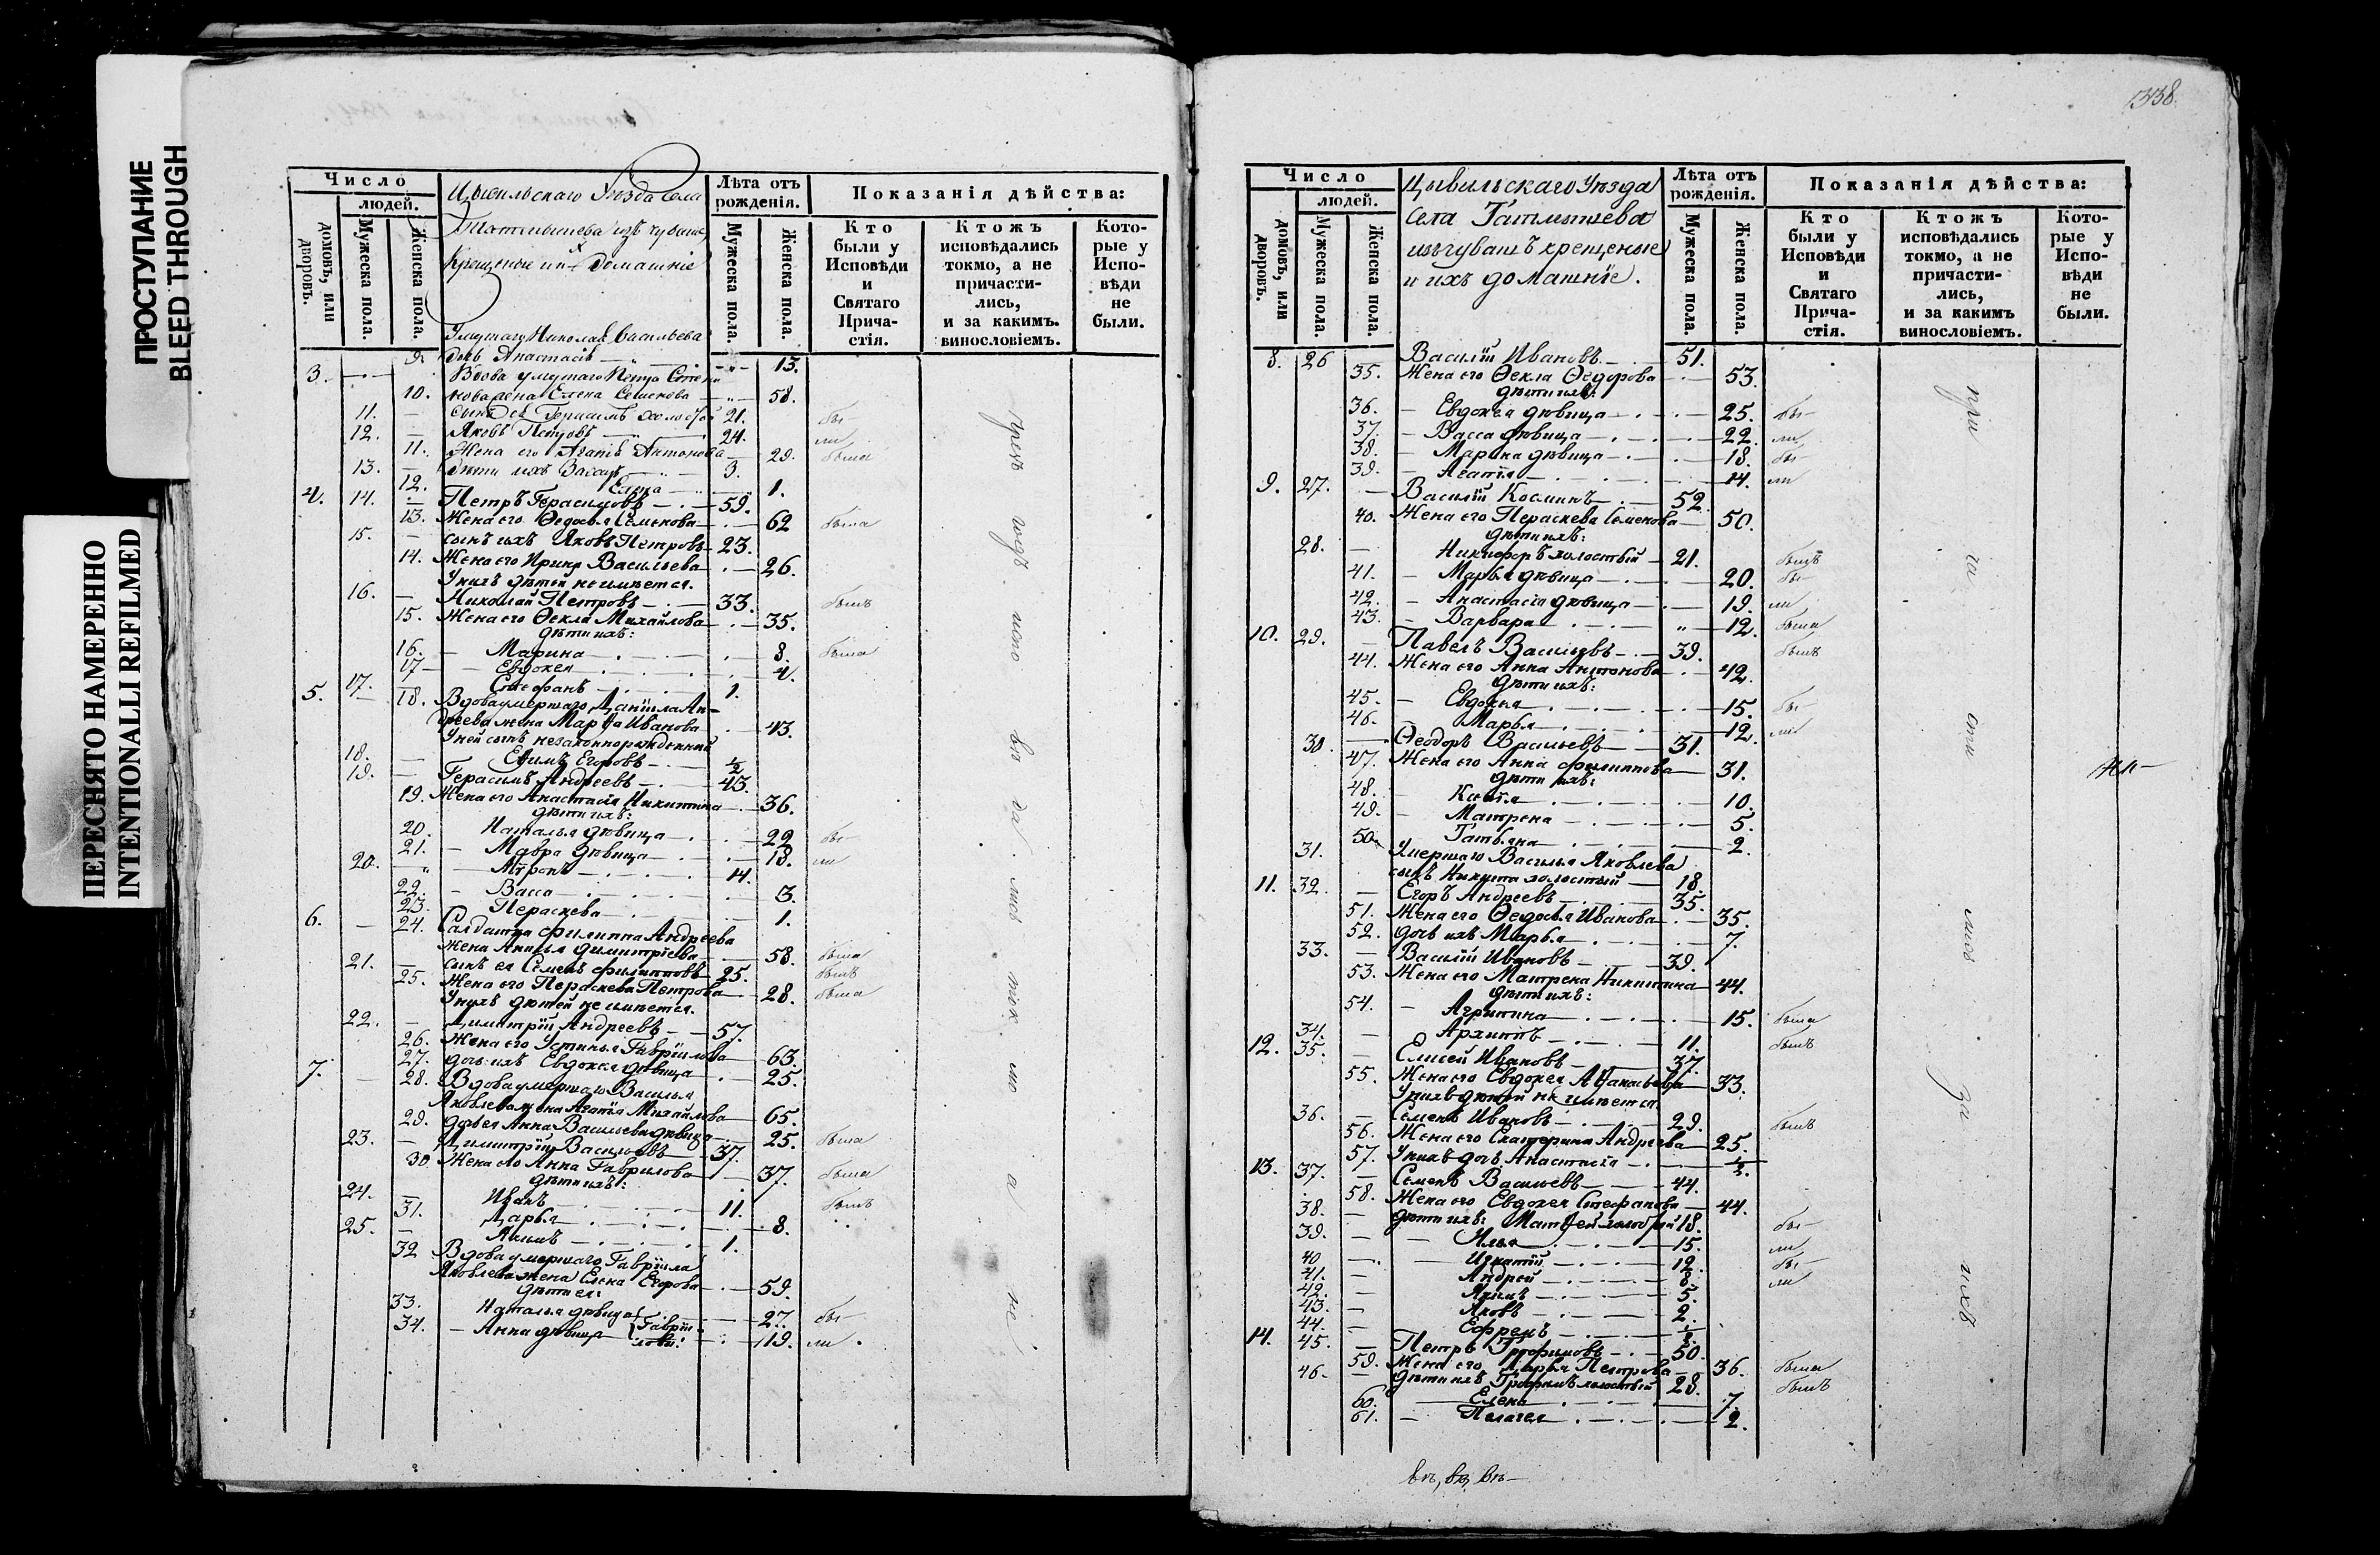 ПРОСТУПАНИЕ
BLEED THROUGH
ПЕРЕСНЯТО НАМЕРЕННО
INTENTIONALLI REFILMED
Число
людей.
домовъ, или дворовъ.
Мужеска пола.
Женска пола.
Цывильскаго Уѣзда Села
изъ чувашъ
Крещеные и ихъ Домашніе
Лѣта отъ рожденія.
Мужеска пола.
Женска пола.
Показанія дѣйства:
Кто были у Исповѣди и Святаго Прича- стія.
Ктожъ исповѣдались токмо, а не причасти- лись, и за какимъ. винословіемъ.
Кото- рые у Испо- вѣди не были.
Николая Васильева
9. дочь Анастасія 13.
3. Вдова умершаго Петра
10. жена Елена Семенова 58.
11. Герасимъ холостой 21. бы
12. Яковъ Петровъ 24. ли
11. Жена его Агаѳія Антонова 29. была
13. дѣти ихъ 3.
12. Елена 1.
4. 14. Петръ Герасимовъ 59.
13. Жена его Ѳедосья Семенова 62 была
15. сынъ ихъ Яковъ Петровъ 23.
14. Жена его Ирина Васильева 26.
У нихъ дѣтей не имѣется.
16. Николай Петровъ 33. былъ
15. Жена его Ѳекла Михайлова 35.
дѣти ихъ:
16. Марина 8. была
17 Евдокея 4.
17. Стефанъ 1.
5. 18. Вдова умершаго Даніила Ан-
дреева жена Марѳа Иванова 43.
У ней сынъ незаконнорожденный
18. Егоровъ 1/2
19. Герасимъ Андреевъ 43.
19. Жена его Анастасія Никитина 36.
дѣти ихъ:
20. Наталья дѣвица 22 бы
21. Мавра дѣвица 18. ли
20. 14.
22. Васса 3.
23. Параскева 1.
6. 24. Салдатка Филиппа Андреева
жена Анисья Димитріева 58. была
21. сынъ ея Семенъ Филипповъ 25. былъ
25. Жена его Параскева Петрова 28. была
У нихъ дѣтей не имѣется.
22. Димитрій Андреевъ 57.
26. Жена его Устинья Гавріилова 63.
27. дочь ихъ Евдокея дѣвица 25.
7. 28. Вдова умершаго Василья
Яковлева жена Агаѳія Михайлова 65.
29. дочь ея Анна Васильева дѣвица 25. была
23. Димитрій Васильевъ 37.
30. Жена его Анна Гаврилова 37. была
дѣти ихъ:
24. Иванъ 11. былъ
31. Дарья 8.
25. Якимъ 1.
32 Вдова умершаго Гавріила
Яковлева жена Елена Егорова 59.
дѣти ея:
33. Наталья дѣвица 27. бы
34. Анна дѣвица Гаврі- ловы: 19. ли
1338.
Число
людей.
домовъ, или дворовъ.
Мужеска пола.
Женска пола.
Цывильскаго Уѣзда
Села
изъ чувашъ крещеные
и ихъ домашніе.
Лѣта отъ рожденія.
Мужеска пола.
Женска пола.
Показанія дѣйства:
Кто были у Исповѣди и Святаго Прича- стія.
Ктожъ исповѣдались токмо, а не причасти- лись, и за какимъ винословіемъ.
Кото- рые у Испо- вѣди не были.
8. 26 Василій Ивановъ 51.
35. Жена его Ѳекла Ѳедорова 53.
дѣти ихъ:
36. Евдокея дѣвица 25. бы
37. Васса дѣвица 22. ли
38. Марина дѣвица 18. бы
39. Агаѳія 14. ли
9. 27. Василій Косминъ 52.
40. Жена его Параскева Семенова 50.
дѣти ихъ:
28. Никифоръ холостый 21. былъ
41. Марья дѣвица 20. бы
42. Анастасія дѣвица 19. ли
43. Варвара 12. была
10. 29. Павелъ Васильевъ 39. былъ
44. Жена его Анна Антонова 42.
дѣти ихъ:
45. Евдокея 15. бы
46. Марья 12. ли
30. Ѳеодоръ Васильевъ 31.
47. Жена его Анна Филиппова 31.
дѣти ихъ:
48. 10.
49. Матрена 5.
50. Татьяна 2.
31. Умершаго Василья Яковлева
сынъ Никита холостый 18.
11. 32. Егоръ Андреевъ 35.
51. Жена его Ѳедосья Иванова 35.
52. дочь ихъ Марья 7.
33. Василій Ивановъ 39.
53. Жена его Матрена Никитина 44.
дѣти ихъ:
54. Агрипина 15. была
34. Архипъ 11. былъ
12. 35. Елисей Ивановъ 37.
55. Жена его Евдокея Аѳанасьева 33.
У нихъ дѣтей не имѣется.
36. Семенъ Ивановъ 29. былъ
56. Жена его Екатерина Андреева 25.
57. У нихъ дочь Анастасія
13. 37. Семенъ Васильевъ 44.
58. Жена его Евдокея Стефанова 44.
38. дѣти ихъ: Матѳей холостый 18. бы
39. Илья 15. ли
40 Игнатій 12. бы
41. Андрей 8. ли
42. Якимъ 5.
43. Яковъ 2.
44. Ефремъ
14. 45. Петръ Трофимовъ 50.
59. Жена его Дарья Петрова 36. была
46. дѣти ихъ Трофимъ холостый 28. былъ
60. Елена 7.
61. Пелагея 2.